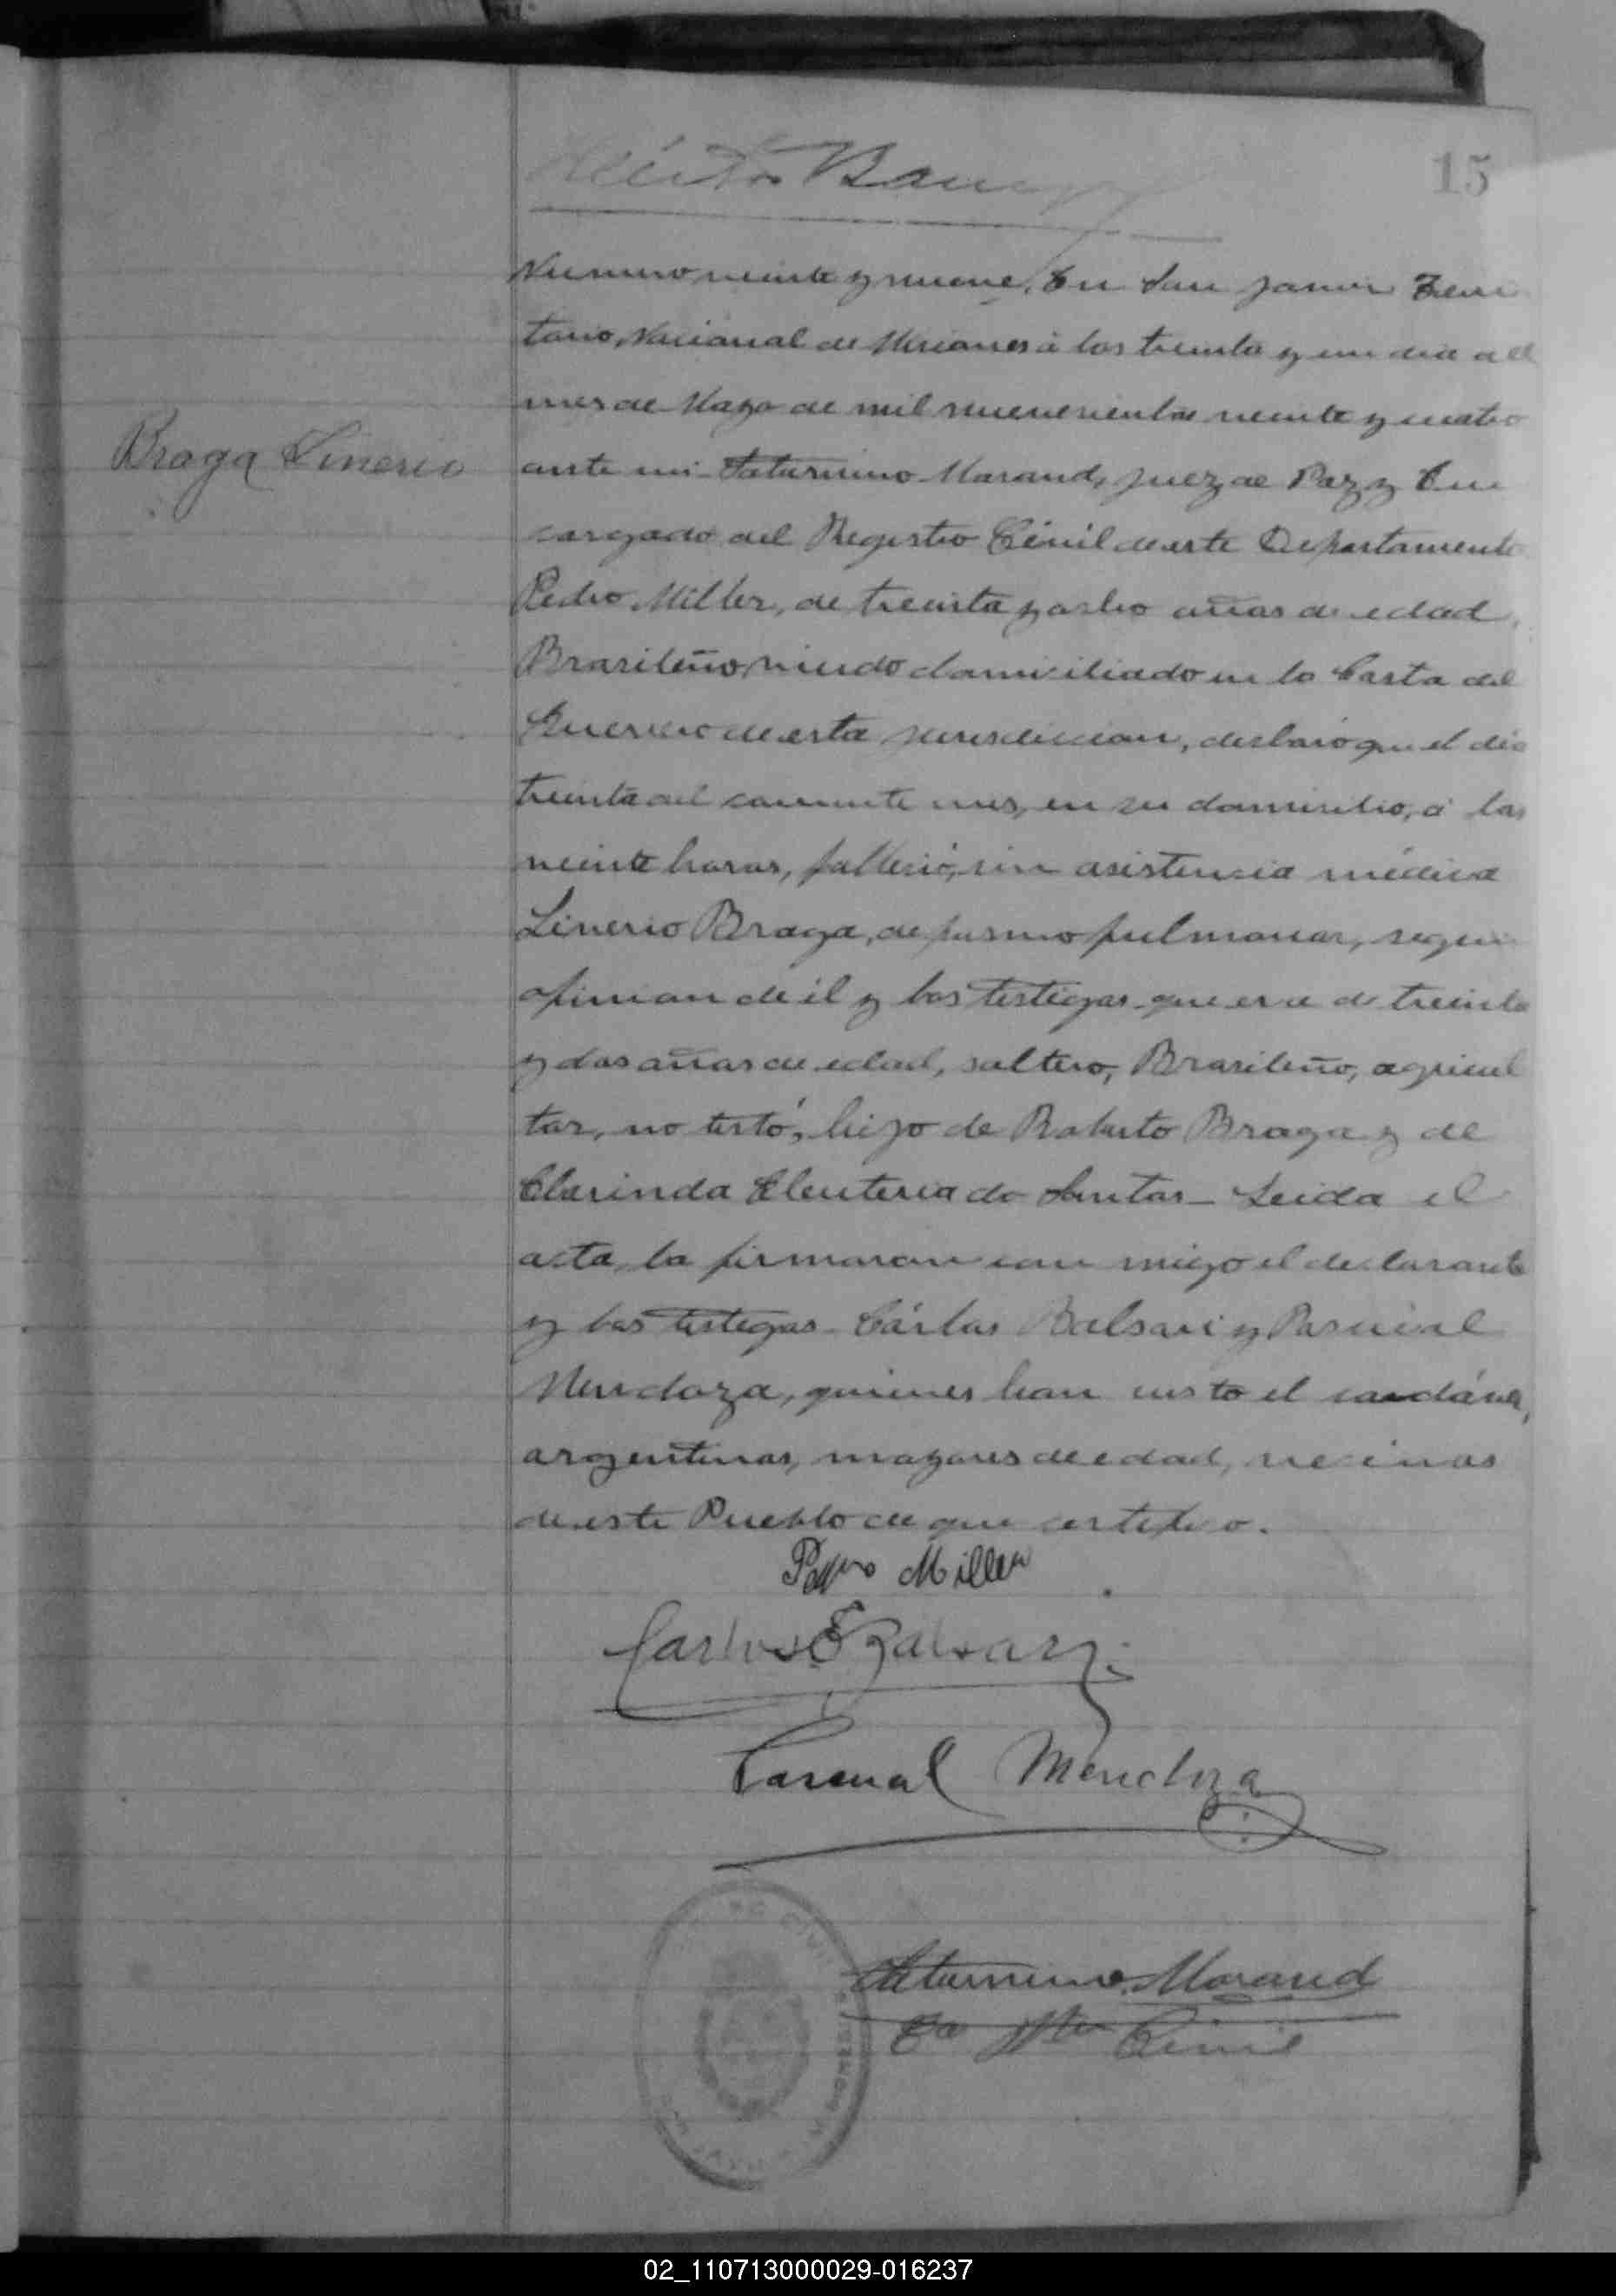 15
Numero veinte y nueve. En San Javier Terri
torio, Nacional de Misiones á los treinta y un dia del
mes de Mayo de mil novecientos veinte y cuatro
Braga Linerio
ante mi Saturnino Morand, Juez de Paz y En
cargado del Registro Civil de este Departamento
Pedro Miller, de treinta y ocho años de edad,
Brasileño, viudo domiciliado en la Costa del
de esta jurisdiccion, declaró que el dia
treinta del corriente mes, en su domicilio, á las
veinte horas, falleció, sin asistencia médica
Linerio Braga, de pasmo pulmonar, segun
opinion de él y los testigos que era de treinta
y dos años de edad, soltero, Brasileño, agricul
tor, no testó, hijo de Roberto Braga y de
Clarinda Eleuteria do Santos - Leida el
acta, la firmaron con migo el declarante
y los testigos Cárlos Balsari y Pascual
Mendoza, quienes han visto el cadáver,
argentinos, mayores de edad, vecinos
de este Pueblo de que certifico.
Pedro Miller
Carlos Balsari
Pascual Mendoza
Saturnino Morand
Civil
MISIONES
02_110713000029-016237